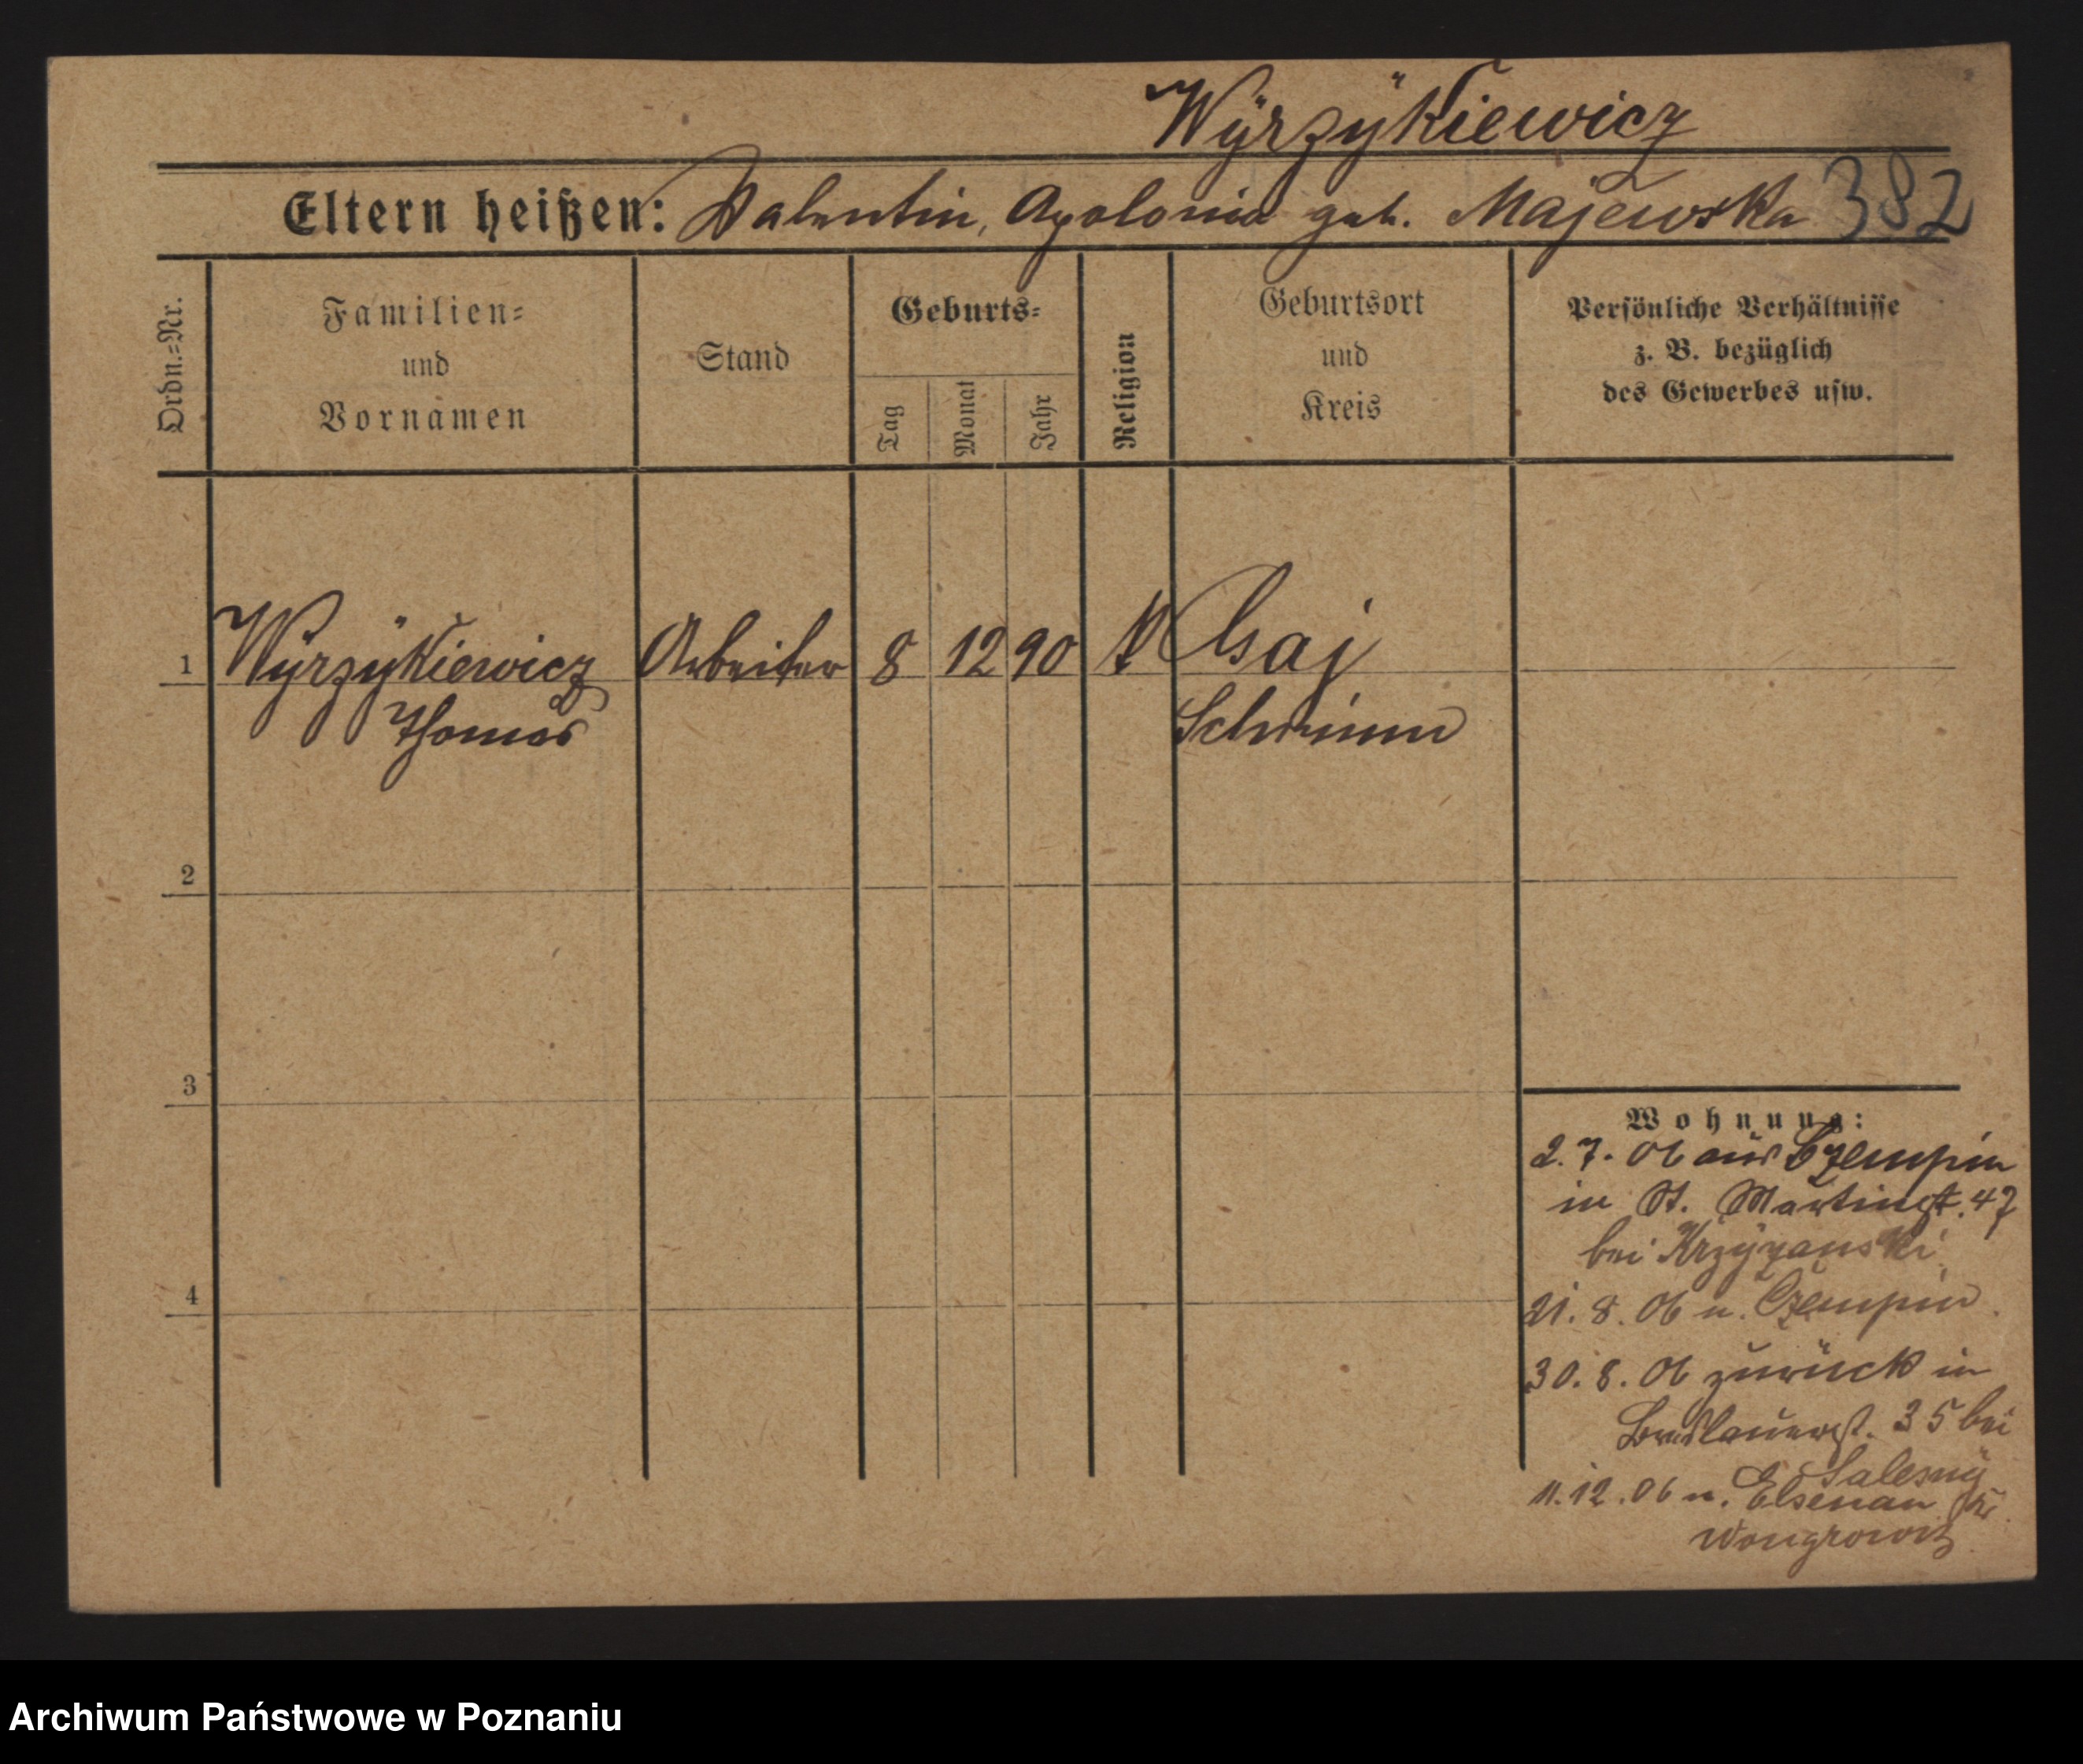 Wÿrzÿkiewicz
Eltern heißen: Valentin, Apolonia geb. Majewska 382
Ordn.=Nr.
Familien=
und
Vornamen
Stand
Geburts=
Tag
Monat
Jahr
Religion
Geburtsort
und
Kreis
Persönliche Verhältnisse
z. B. bezüglich
des Gewerbes usw.
1 Wÿrzÿkiewicz Arbeiter 8 12 90 k Gaj
Thomas Schrimm
2
3
4
Wohnung:
2. 7. 06 aus Czempin
in St. Martinst. 47
bei Krzÿzanski
21. 8. 06 n. Czempin.
30. 8. 06 zurück in
Breslauerst. 35 bei
Salesny
11. 12. 06 n. Elsenau Kr.
Wongrowitz
Archiwum Państwowe w Poznaniu